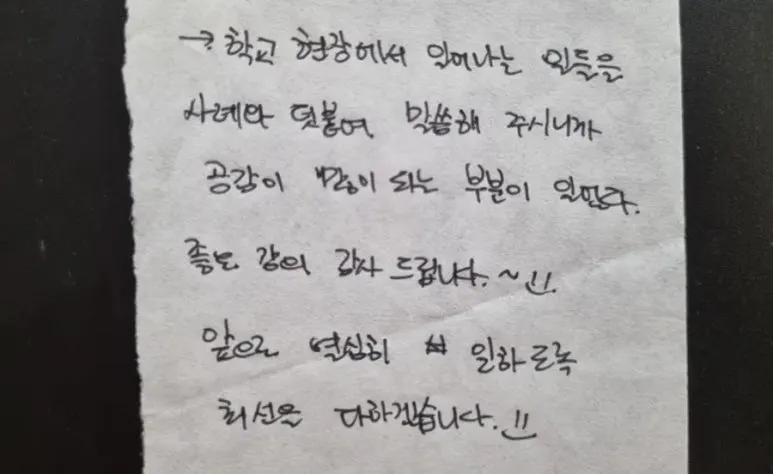 → 학교 현장에서 일어나는 일들을
사례와 덧붙여 말씀해 주시니까
공감이 많이 되는 부분이
좋은 강의 감사 드립니다.~!!
앞으로 열심히 일하도록
최선을 다하겠습니다.!!